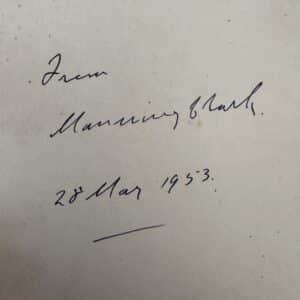 From
Manning Clark.
28 May 1953.